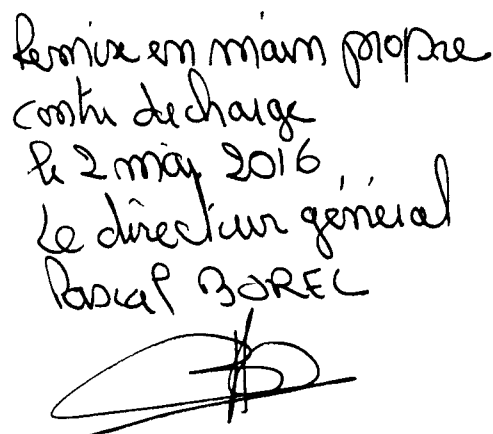 Remise en main propre
contre decharge
le 2 mai 2016
Le directeur général
Pascal BOREL